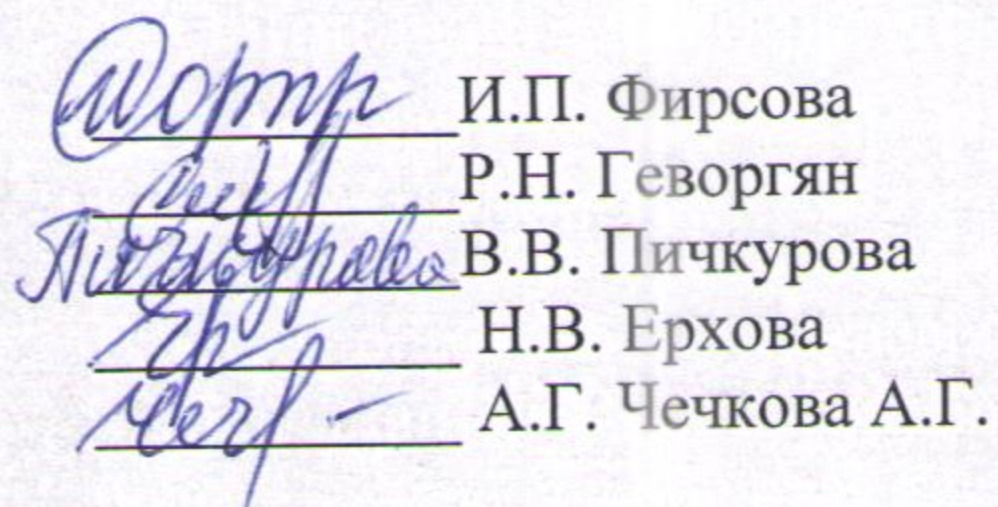 И.П. Фирсова
Р.Н. Геворгян
Пичкурова В.В. Пичкурова
Н.В. Ерхова
А.Г. Чечкова А.Г.